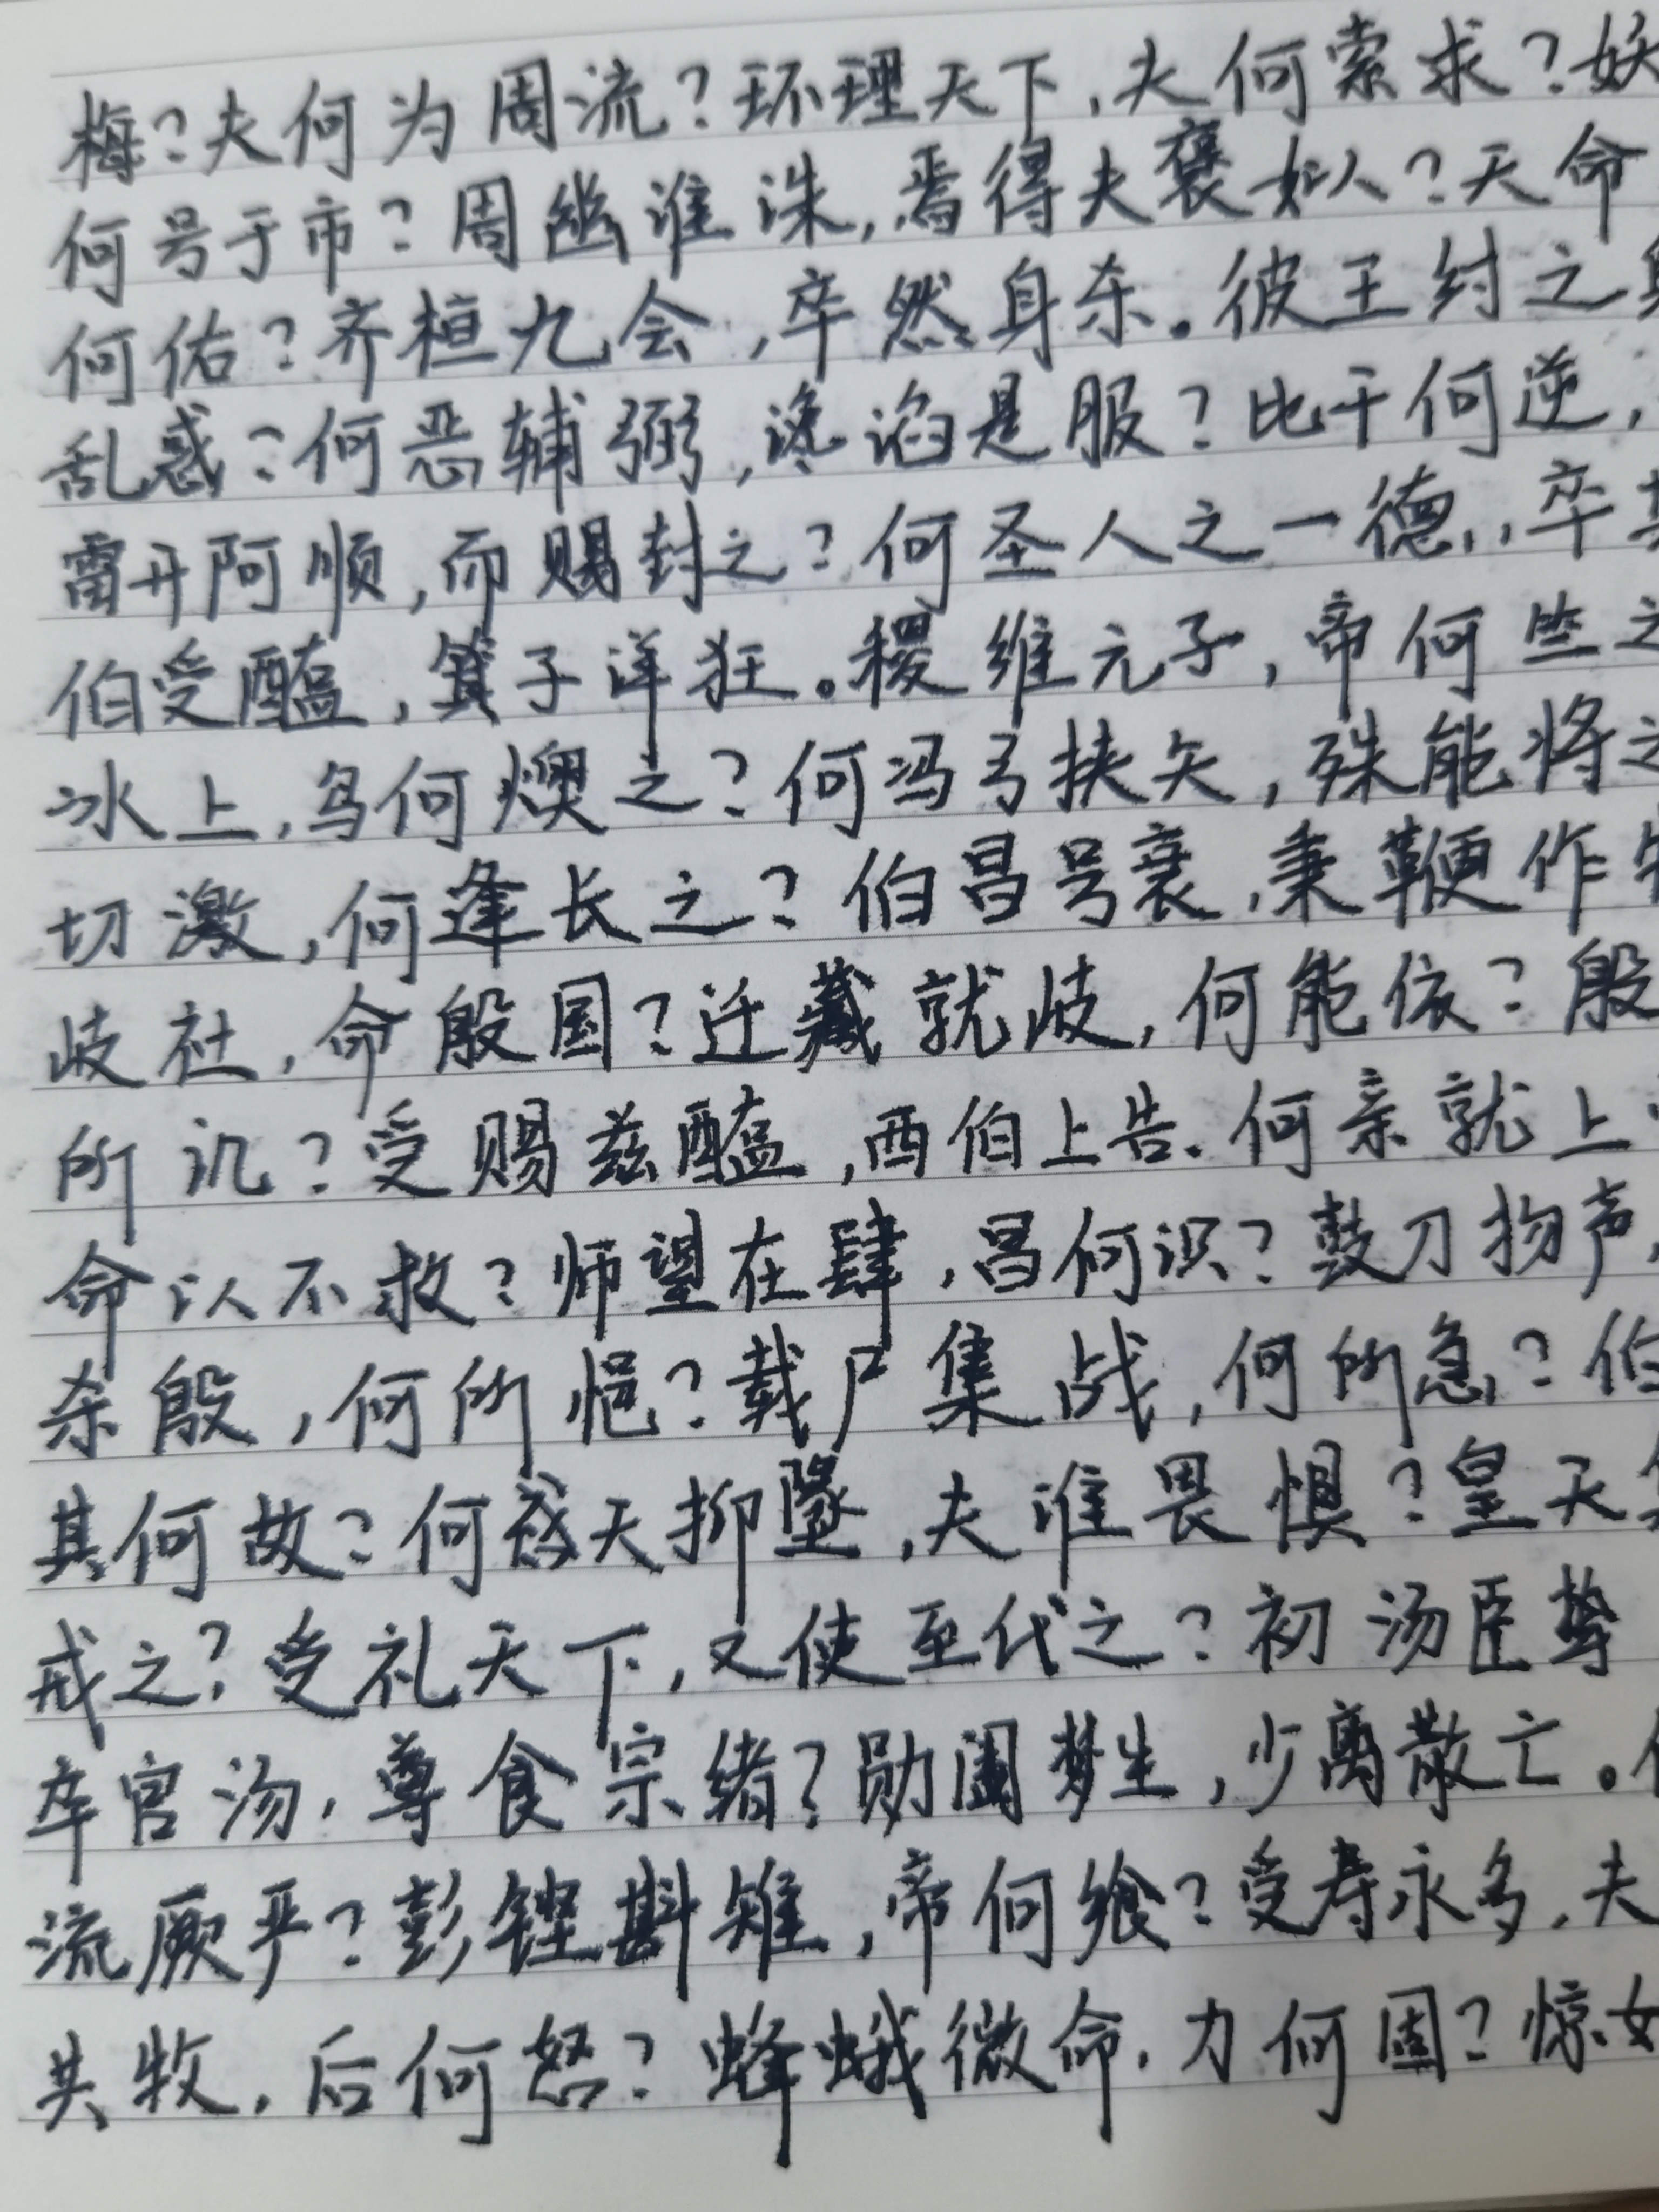 梅？夫何为周流？环理天下，夫何索求？妖
何号于市？周幽谁诛，焉得夫褒姒？天命
何佑？齐桓九会，卒然身杀。彼王纣之
乱惑？何恶辅弼，谗谄是服？比干何逆，
雷开阿顺，而赐封之？何圣人之一德，卒其
伯受醢，箕子详狂。稷维元子，帝何竺之
冰上，鸟何燠之？何冯弓挟矢，殊能将之
切激，何逢长之？伯昌号衰，秉鞭作牧
歧社，命殷国？迁藏就岐，何能依？殷
所讥？受赐兹醢，西伯上告。何亲就上
命以不救？师望在肆，昌何识？鼓刀扬声，
杀殷，何所悒？载尸集战，何所急？伯
其何故？何感天抑墬，夫谁畏惧？皇天集
戒之？受礼天下，又使至代之？初汤臣挚
卒官汤，尊食宗绪？勋阖梦生，少离散亡。
流厥严？彭铿斟雉，帝何飨？受寿永多，夫
共牧，后何怒？蜂蛾微命，力何固？惊女